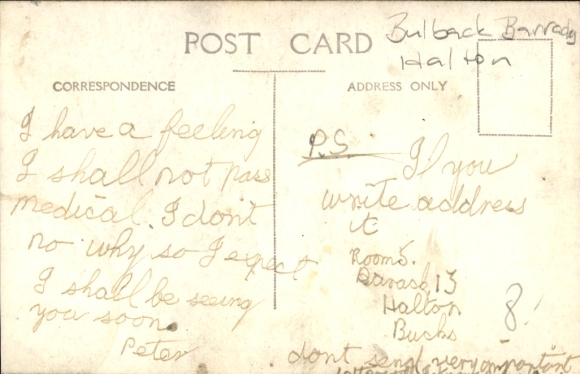 POST CARD
Bulback Barrack
Halton
CORRESPONDENCE
ADDRESS ONLY
I have a feeling
I shall not pass
medical. I dont
no why so I expect
I shall be seeing
you soon.
Peter
P.S If you
write address
it
Room 5.
13
Halton
Bucks
8/
dont send very important